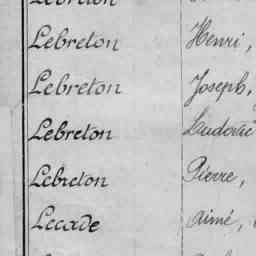 Lebreton
Lebreton Henri,
Lebreton Joseph,
Lebreton Ludovic
Lebreton Pierre,
Lecade Aimé,